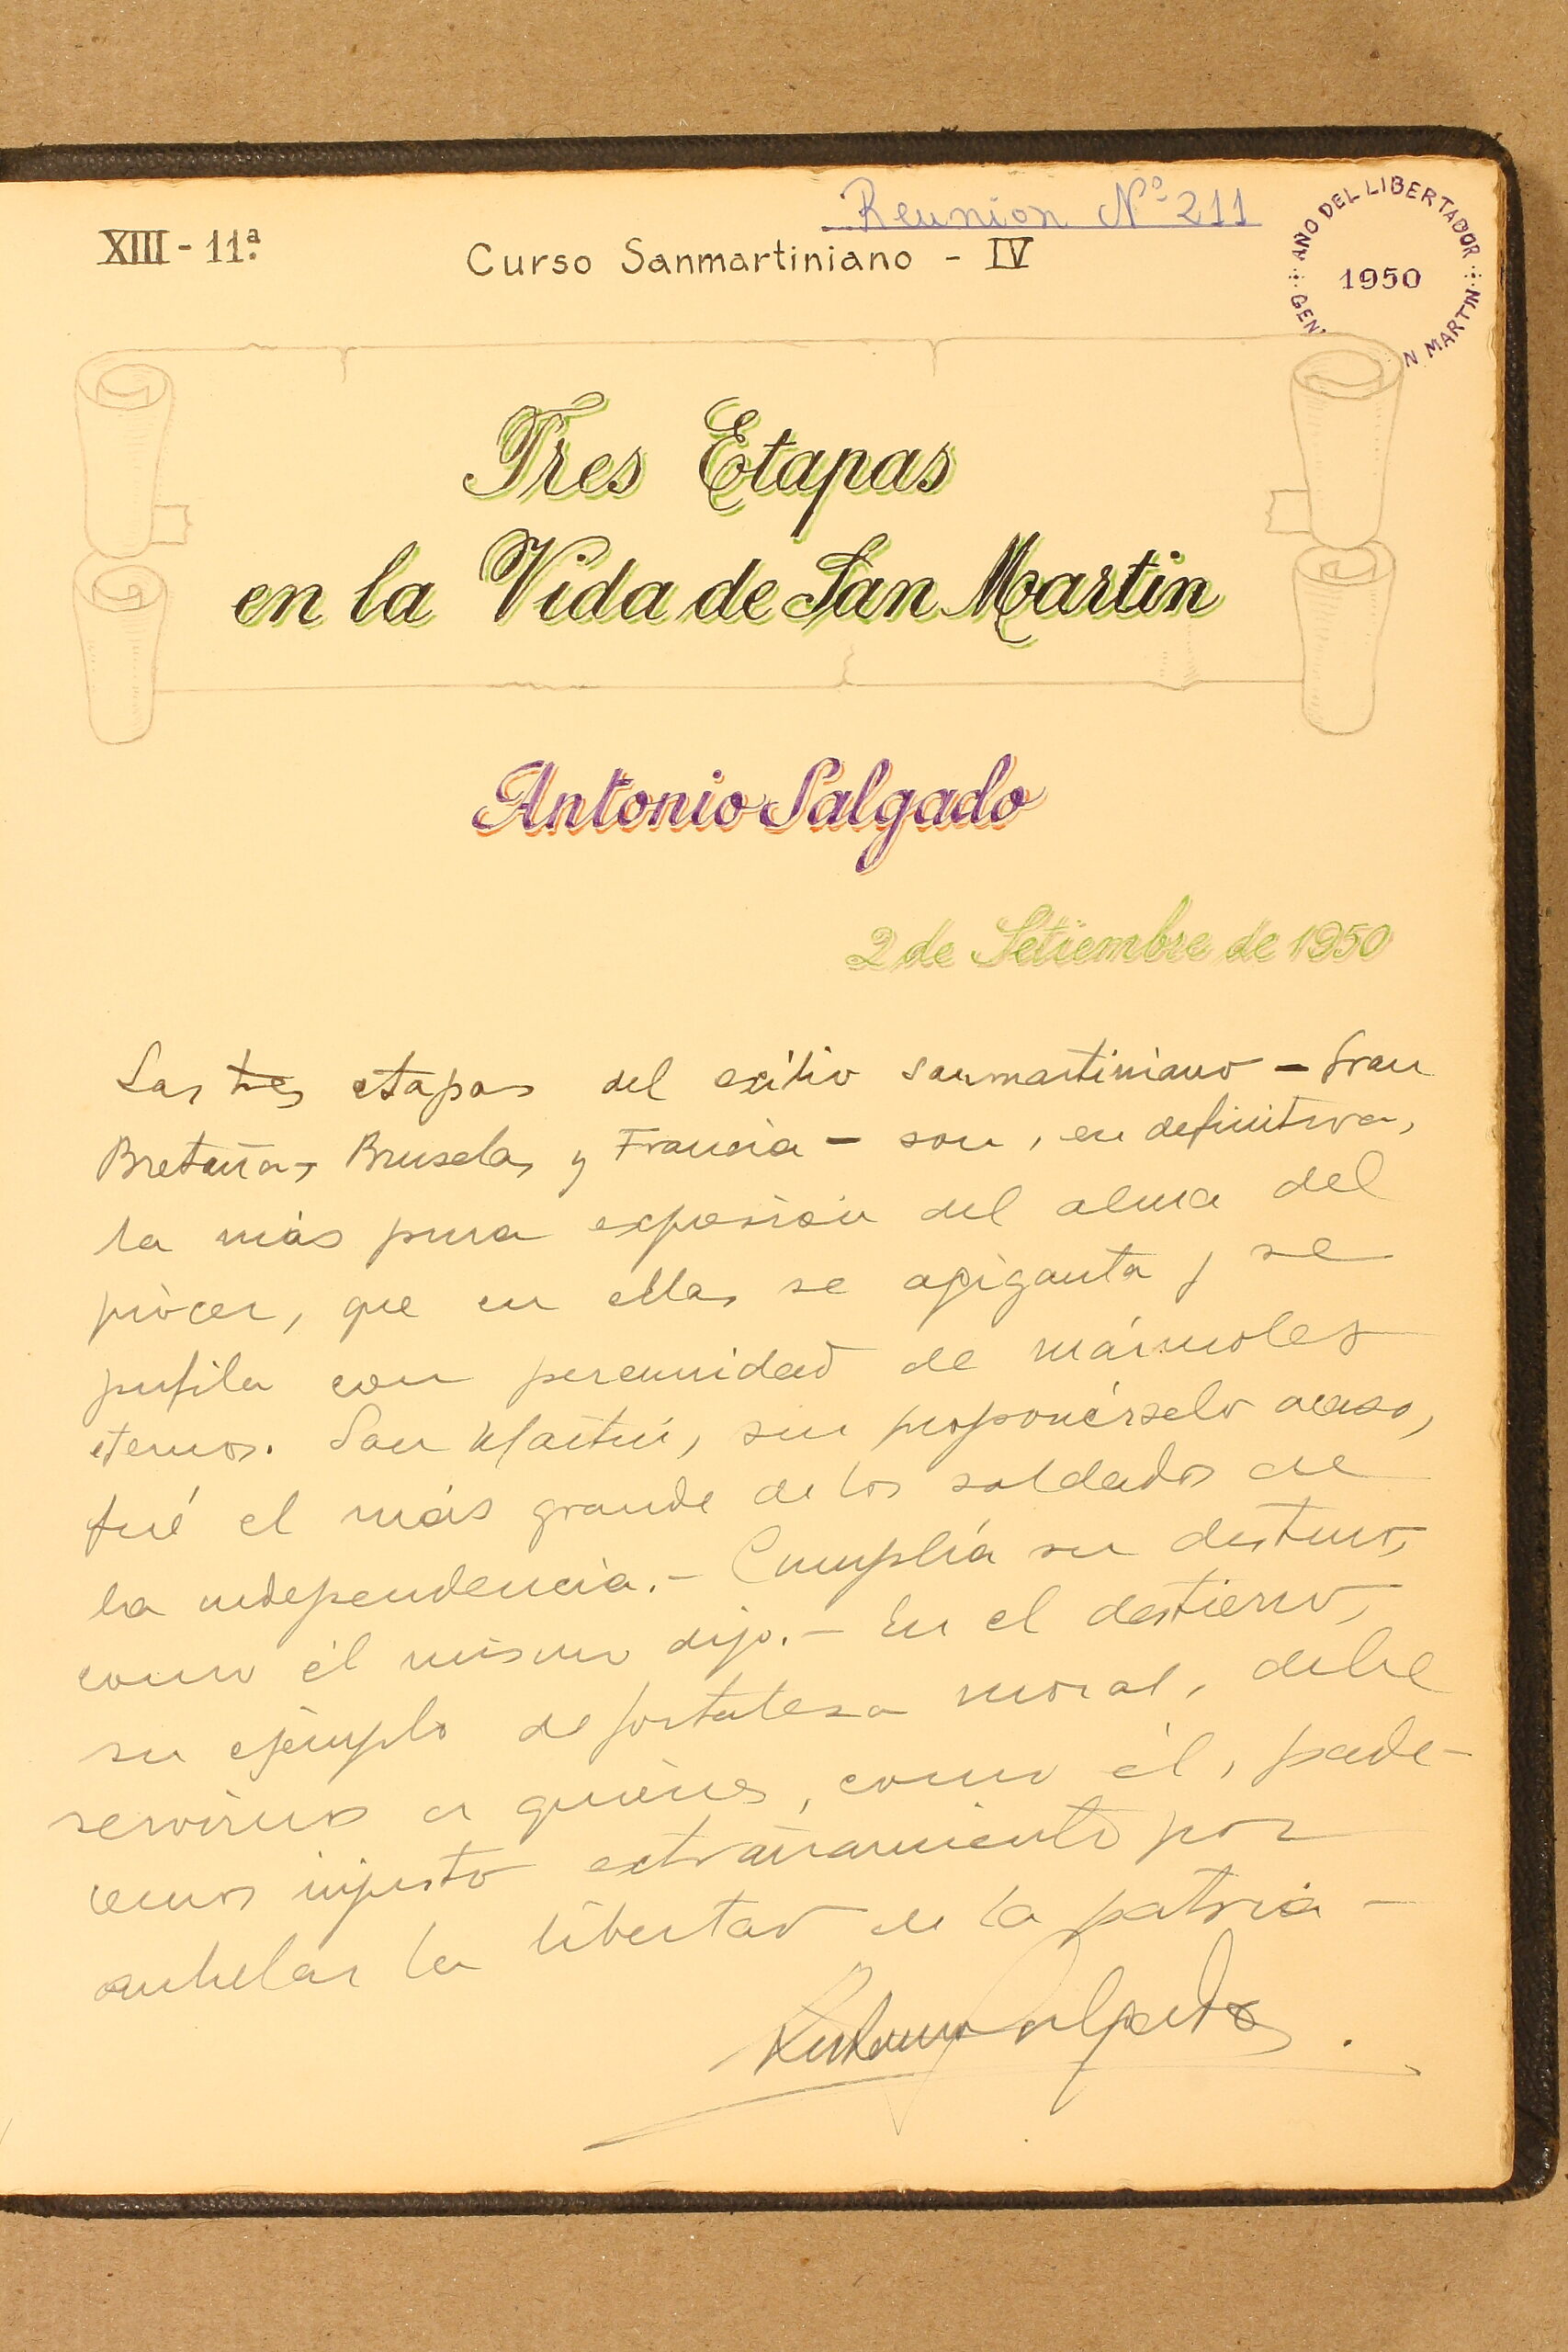 Reunion Nº 211
XIII - 11ª
Curso Sanmartiniano - IV
AÑO DEL LIBERTADOR
1950
GEN N MARTIN
Tres Etapas
en la Vida de San Martin
Antonio Salgado
2 de Setiembre de 1950
Las tres etapas del exilio sanmartiniano – Gran
Bretaña, Bruselas y Francia – son, en definitiva,
la más pura expresión del alma del
prócer, que en ellas se agiganta y se
perfila con perennidad de mármoles
eternos. San Martín, sin proponérselo acaso,
fué el más grande de los soldados de
la independencia. – Cumplía su destino,
como él mismo dijo. – En el destierro,
su ejemplo de fortaleza moral, debe
servirnos a quienes, como él, pade-
cemos injusto extrañamiento por
anhelar la libertad de la patria –
Antonio Salgado